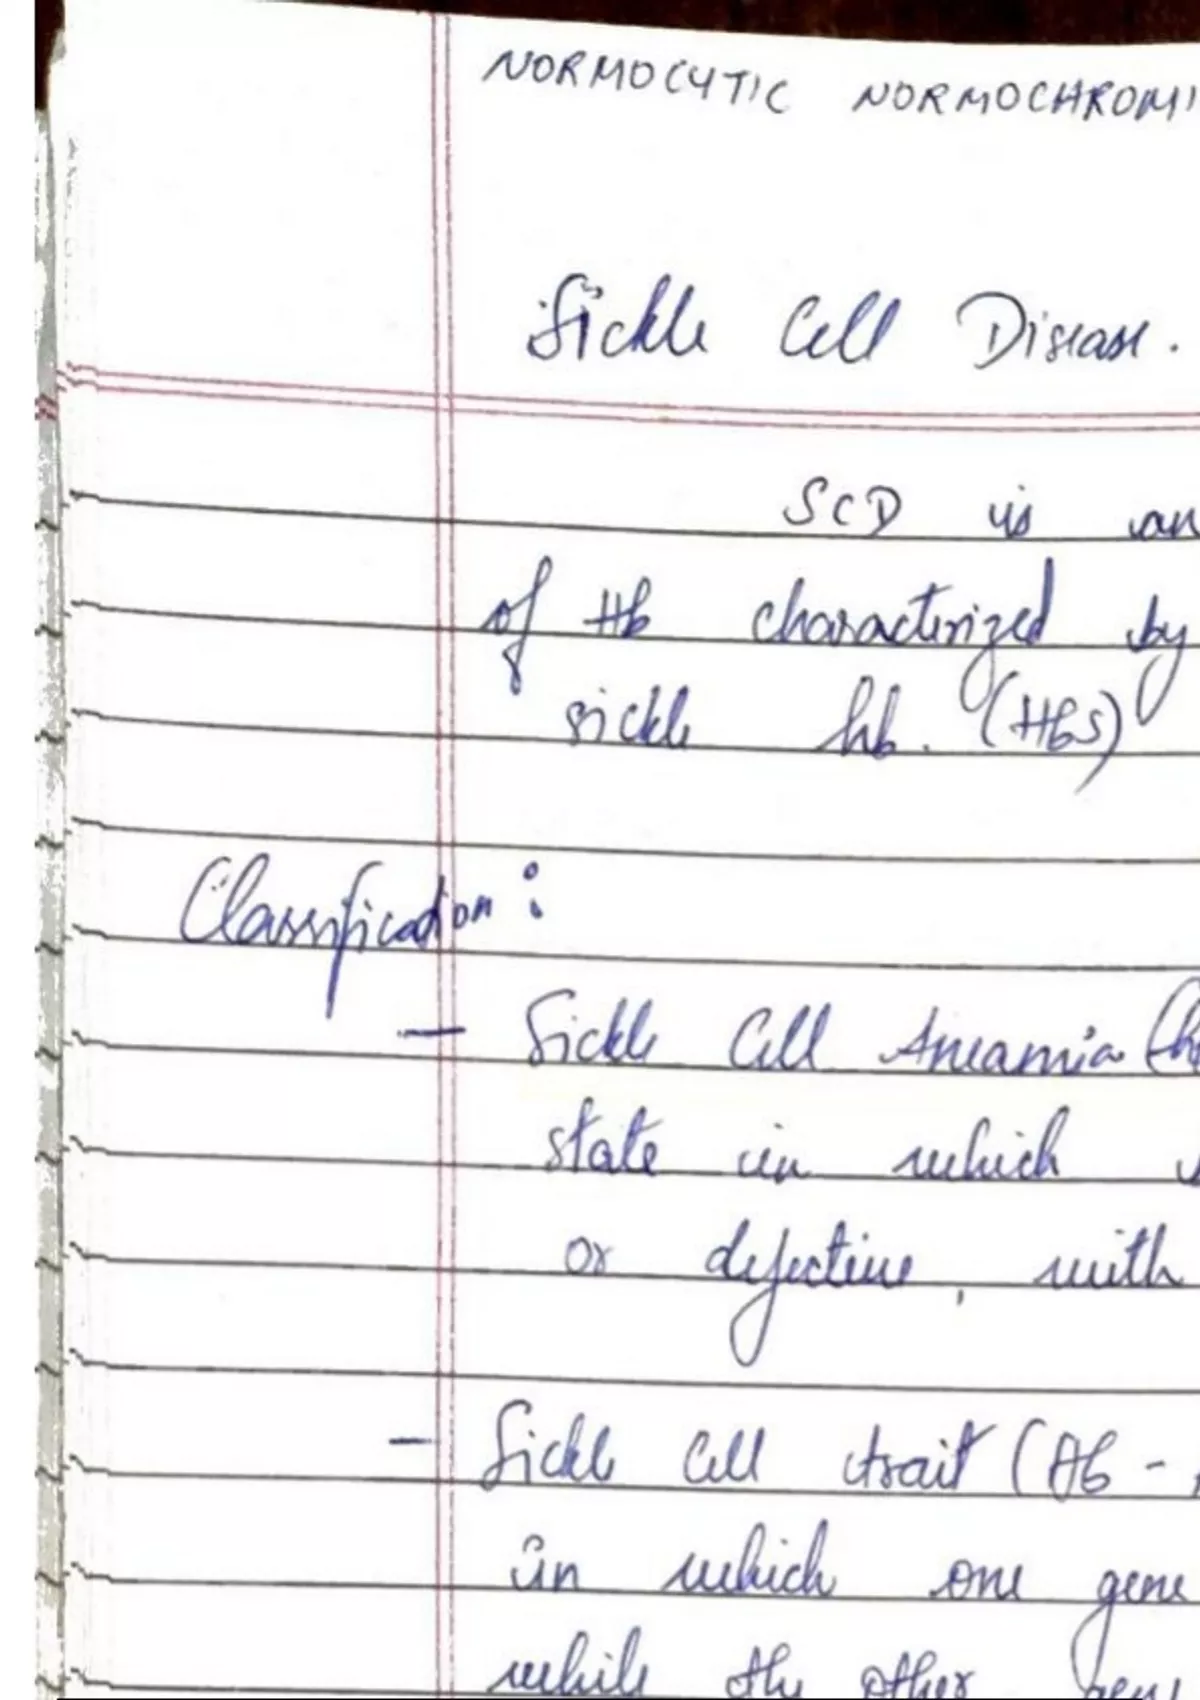 NORMOCYTIC NORMOCHROMI
Sickle Cell Disease.
SCD is an
of Hb characterized by
sickle hb. (HbS)
Classification :
- Sickle Cell Aneamia (h
state in which
or defective, with
- Sickle Cell trait (Hb -
in which one gene
while the other gene